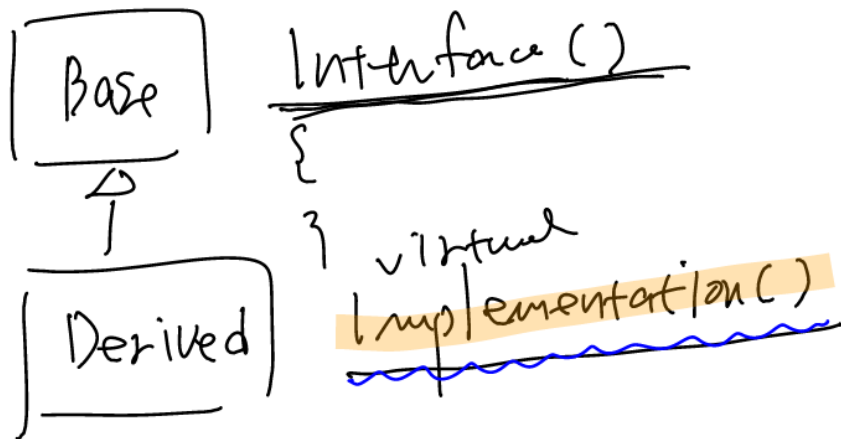 Base
Interface()
{
}
virtual
Implementation()
Derived